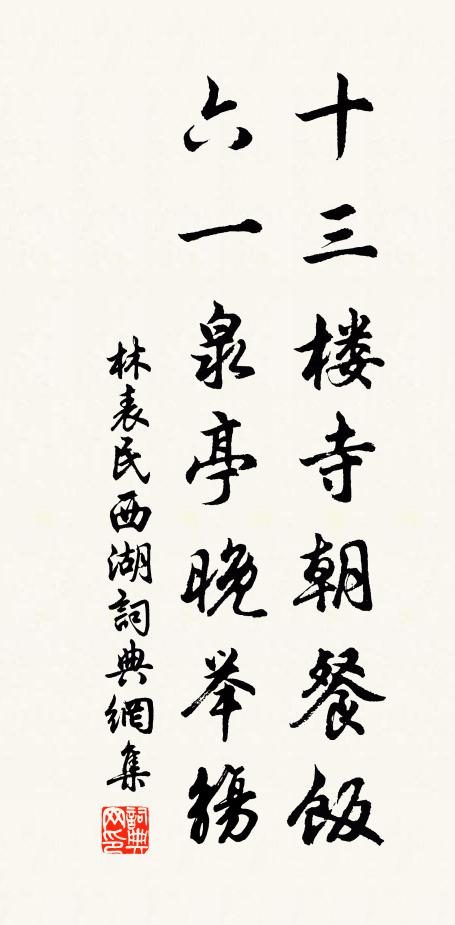 十三楼寺朝餐饭
六一泉亭晚举觞
林表民西湖詞典網集
詞典网印